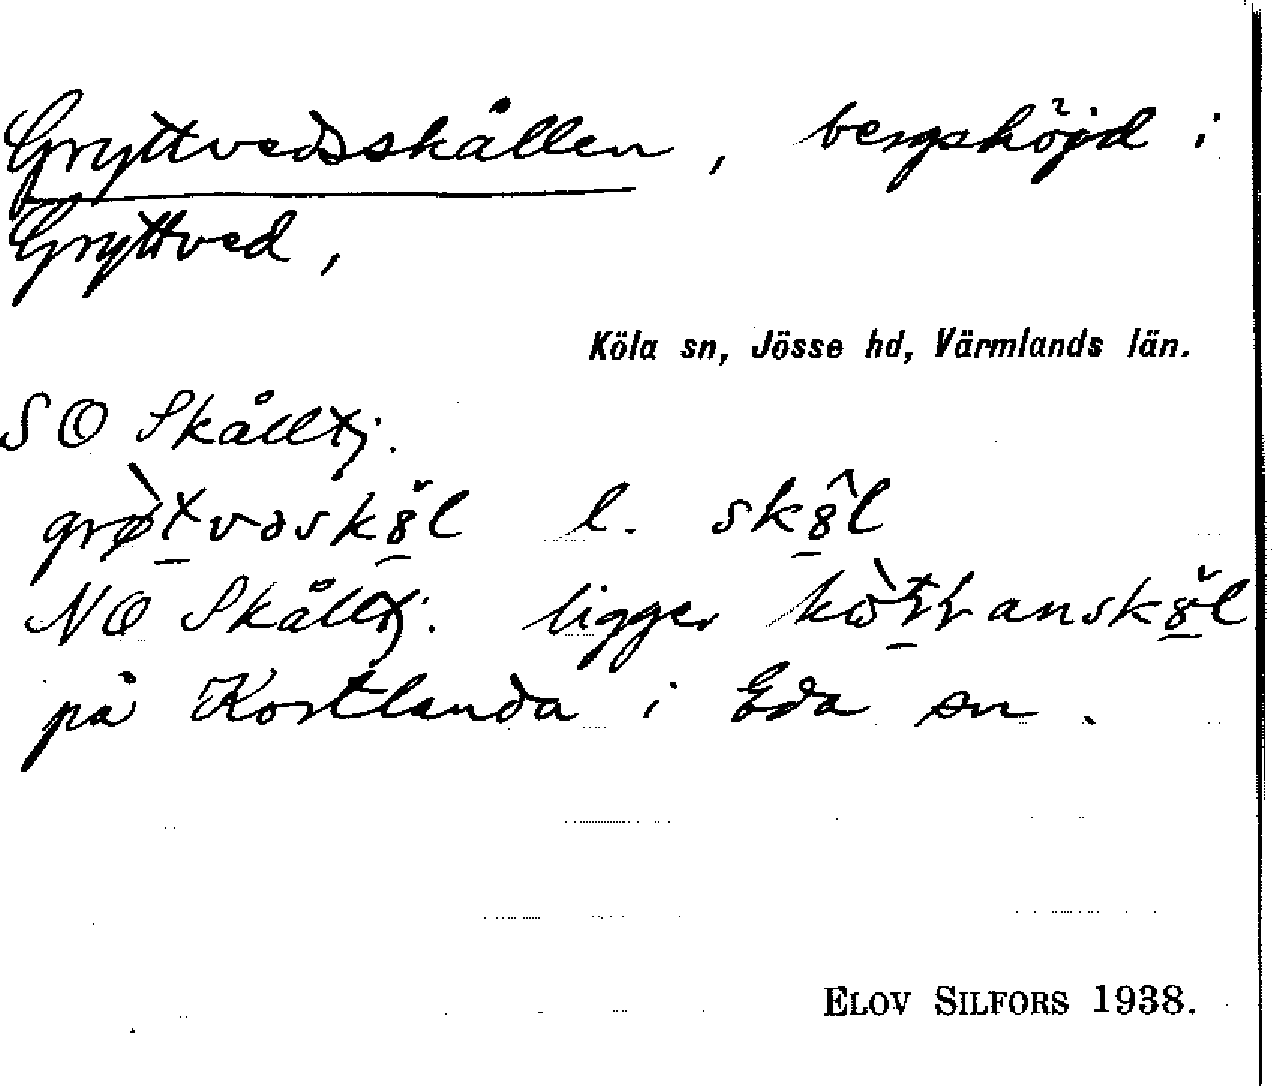 Gryttvedsskållen, bergshöjd i
Gryttved,
Köla sn, Jösse hd, Värmlands län.
SO Skålltj.
l.
NO Skålltj. ligger
på Kortlanda i Eda sn.
ELOV SILFORS 1938.